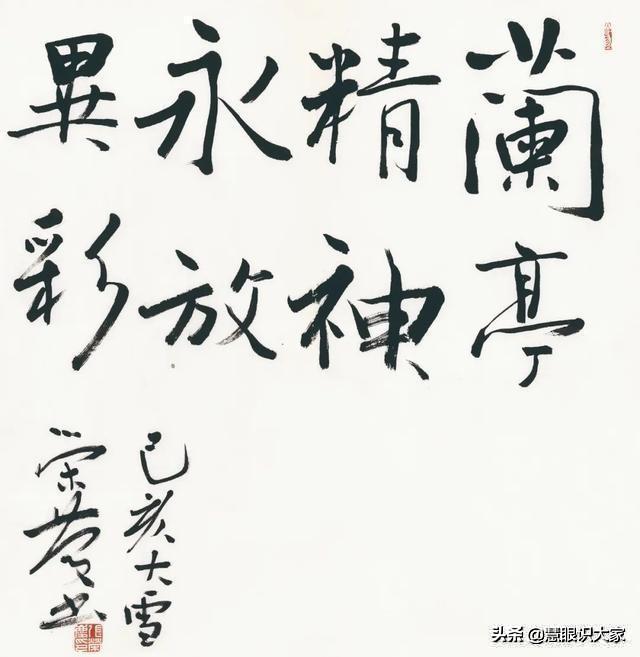 蘭亭
精神
永放
異彩
己亥大雪
榮慶书
头条 @慧眼识大家